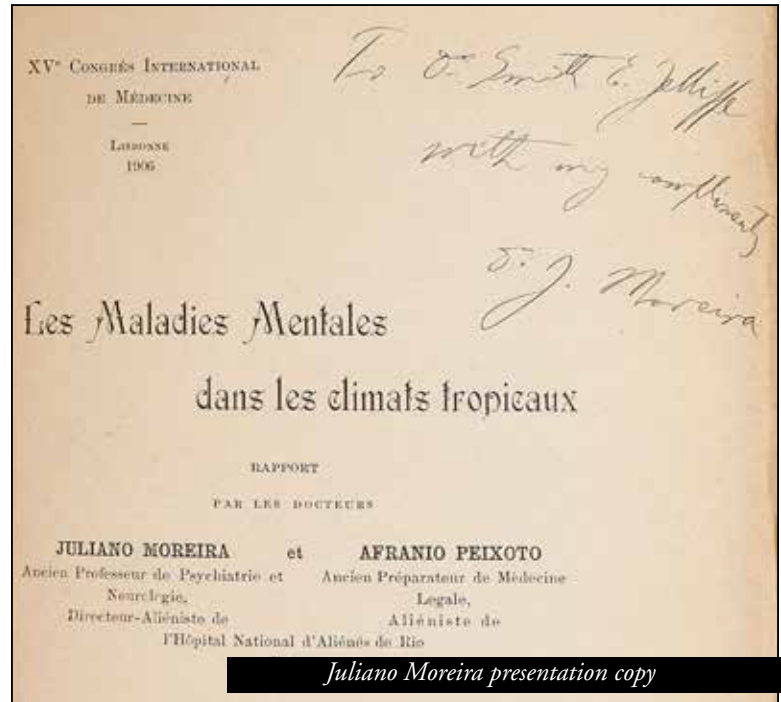 XVᵉ CONGRÈS INTERNATIONAL
DE MÉDECINE
LISBONNE
1906
To Dr. Smith E. Jelliffe
with my compliments
Dr. J. Moreira
Les Maladies Mentales
dans les climats tropicaux
RAPPORT
PAR LES DOCTEURS
JULIANO MOREIRA et AFRANIO PEIXOTO
Ancien Professeur de Psychiatrie et Ancien Préparateur de Médecine
Neurologie, Legale,
Directeur-Aliéniste de Aliéniste de
l'Hôpital National d'Aliénés de Rio
Juliano Moreira presentation copy